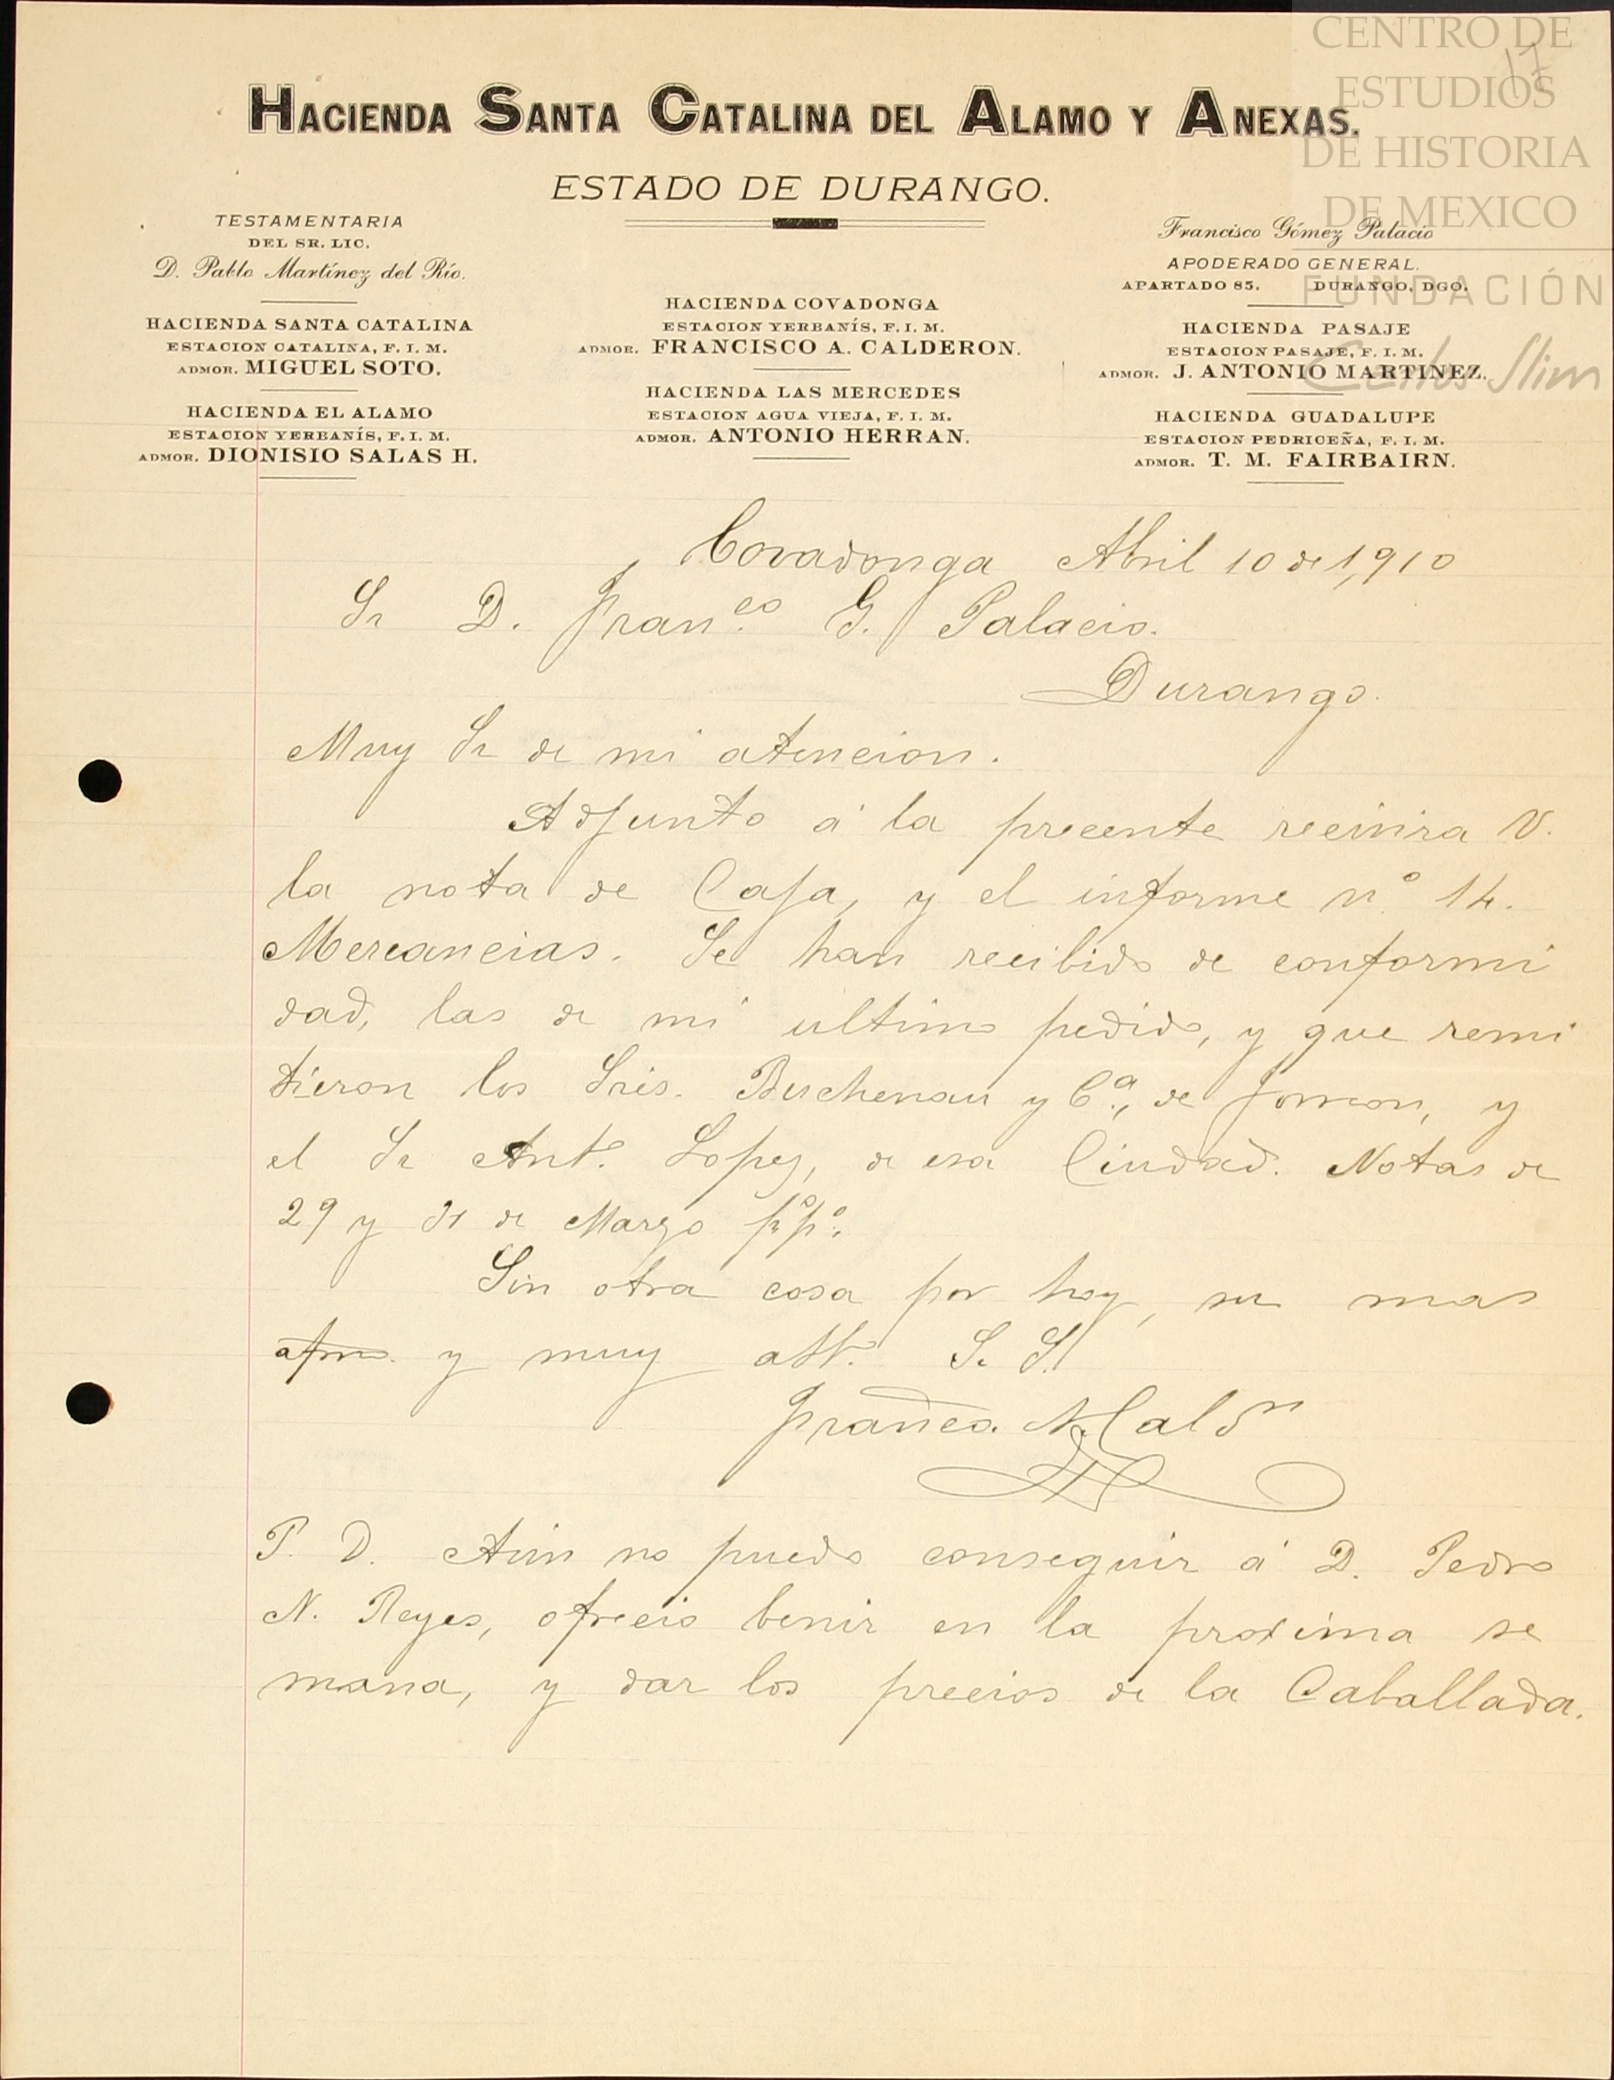 CENTRO DE
ESTUDIOS
DE HISTORIA
DE MEXICO
FUNDACIÓN
Carlos Slim
17
HACIENDA SANTA CATALINA DEL ALAMO Y ANEXAS.
ESTADO DE DURANGO.
TESTAMENTARIA
DEL SR. LIC.
D. Pablo Martínez del Río.
HACIENDA SANTA CATALINA
ESTACION CATALINA, F. I. M.
ADMOR. MIGUEL SOTO.
HACIENDA EL ALAMO
ESTACION YERBANÍS, F. I. M.
ADMOR. DIONISIO SALAS H.
HACIENDA COVADONGA
ESTACION YERBANÍS, F. I. M.
ADMOR. FRANCISCO A. CALDERON.
HACIENDA LAS MERCEDES
ESTACION AGUA VIEJA, F. I. M.
ADMOR. ANTONIO HERRAN.
Francisco Gómez Palacio
APODERADO GENERAL.
APARTADO 85. DURANGO, DGO.
HACIENDA PASAJE
ESTACION PASAJE, F. I. M.
ADMOR. J. ANTONIO MARTINEZ.
HACIENDA GUADALUPE
ESTACION PEDRICEÑA, F. I. M.
ADMOR. T. M. FAIRBAIRN.
Covadonga Abril 10 de 1,910
Sr D. Franco. G. Palacio.
Durango.
Muy Sr de mi atencion.
Adjunto á la precente recivira V.
la nota de Caja, y el informe nº 14.
Mercancias. Se han recibido de conformi
dad, las de mi ultimo pedido, y que remi
tieron los Sres. Buchenau y Cª, de Torreon, y
el Sr Antº. Lopez, de esa Ciudad. Notas de
29 y 31 de Marzo pº pº.
Sin otra cosa por hoy, su mas
afmo. y muy attº. S. S.
Franco. A. Caldn
P. D. Aún no puedo conseguir á D. Pedro
N. Reyes, ofrecio benir en la proxima se
mana, y dar los precios de la Caballada.